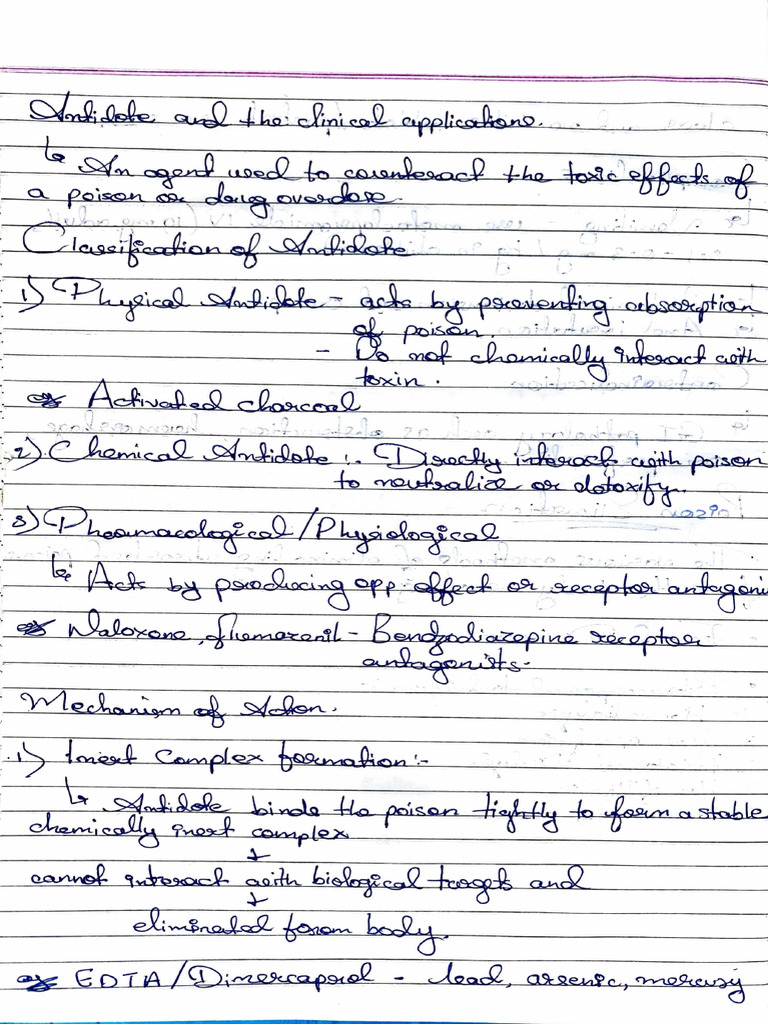 Antidote and the clinical applications.
↳ An agent used to counteract the toxic effects of
a poison or drug overdose.
Classification of Antidote
1) Physical Antidote - acts by preventing absorption
of poison.
- Do not chemically interact with
toxin.
ex Activated charcoal
2) Chemical Antidote :- Directly interact with poison
to neutralize or detoxify.
3) Pharmacological/Physiological
↳ Acts by producing opp. effect or receptor antagoni
ex Naloxone, flumazenil - Bendzodiazepine receptor
antagonists.
Mechanism of Action.
1) Inert Complex formation:-
↳ Antidote binds the poison tightly to form a stable
chemically inert complex
↓
cannot interact with biological targets and
↓
eliminated from body.
ex EDTA/Dimercaprol - lead, arsenic, mercury